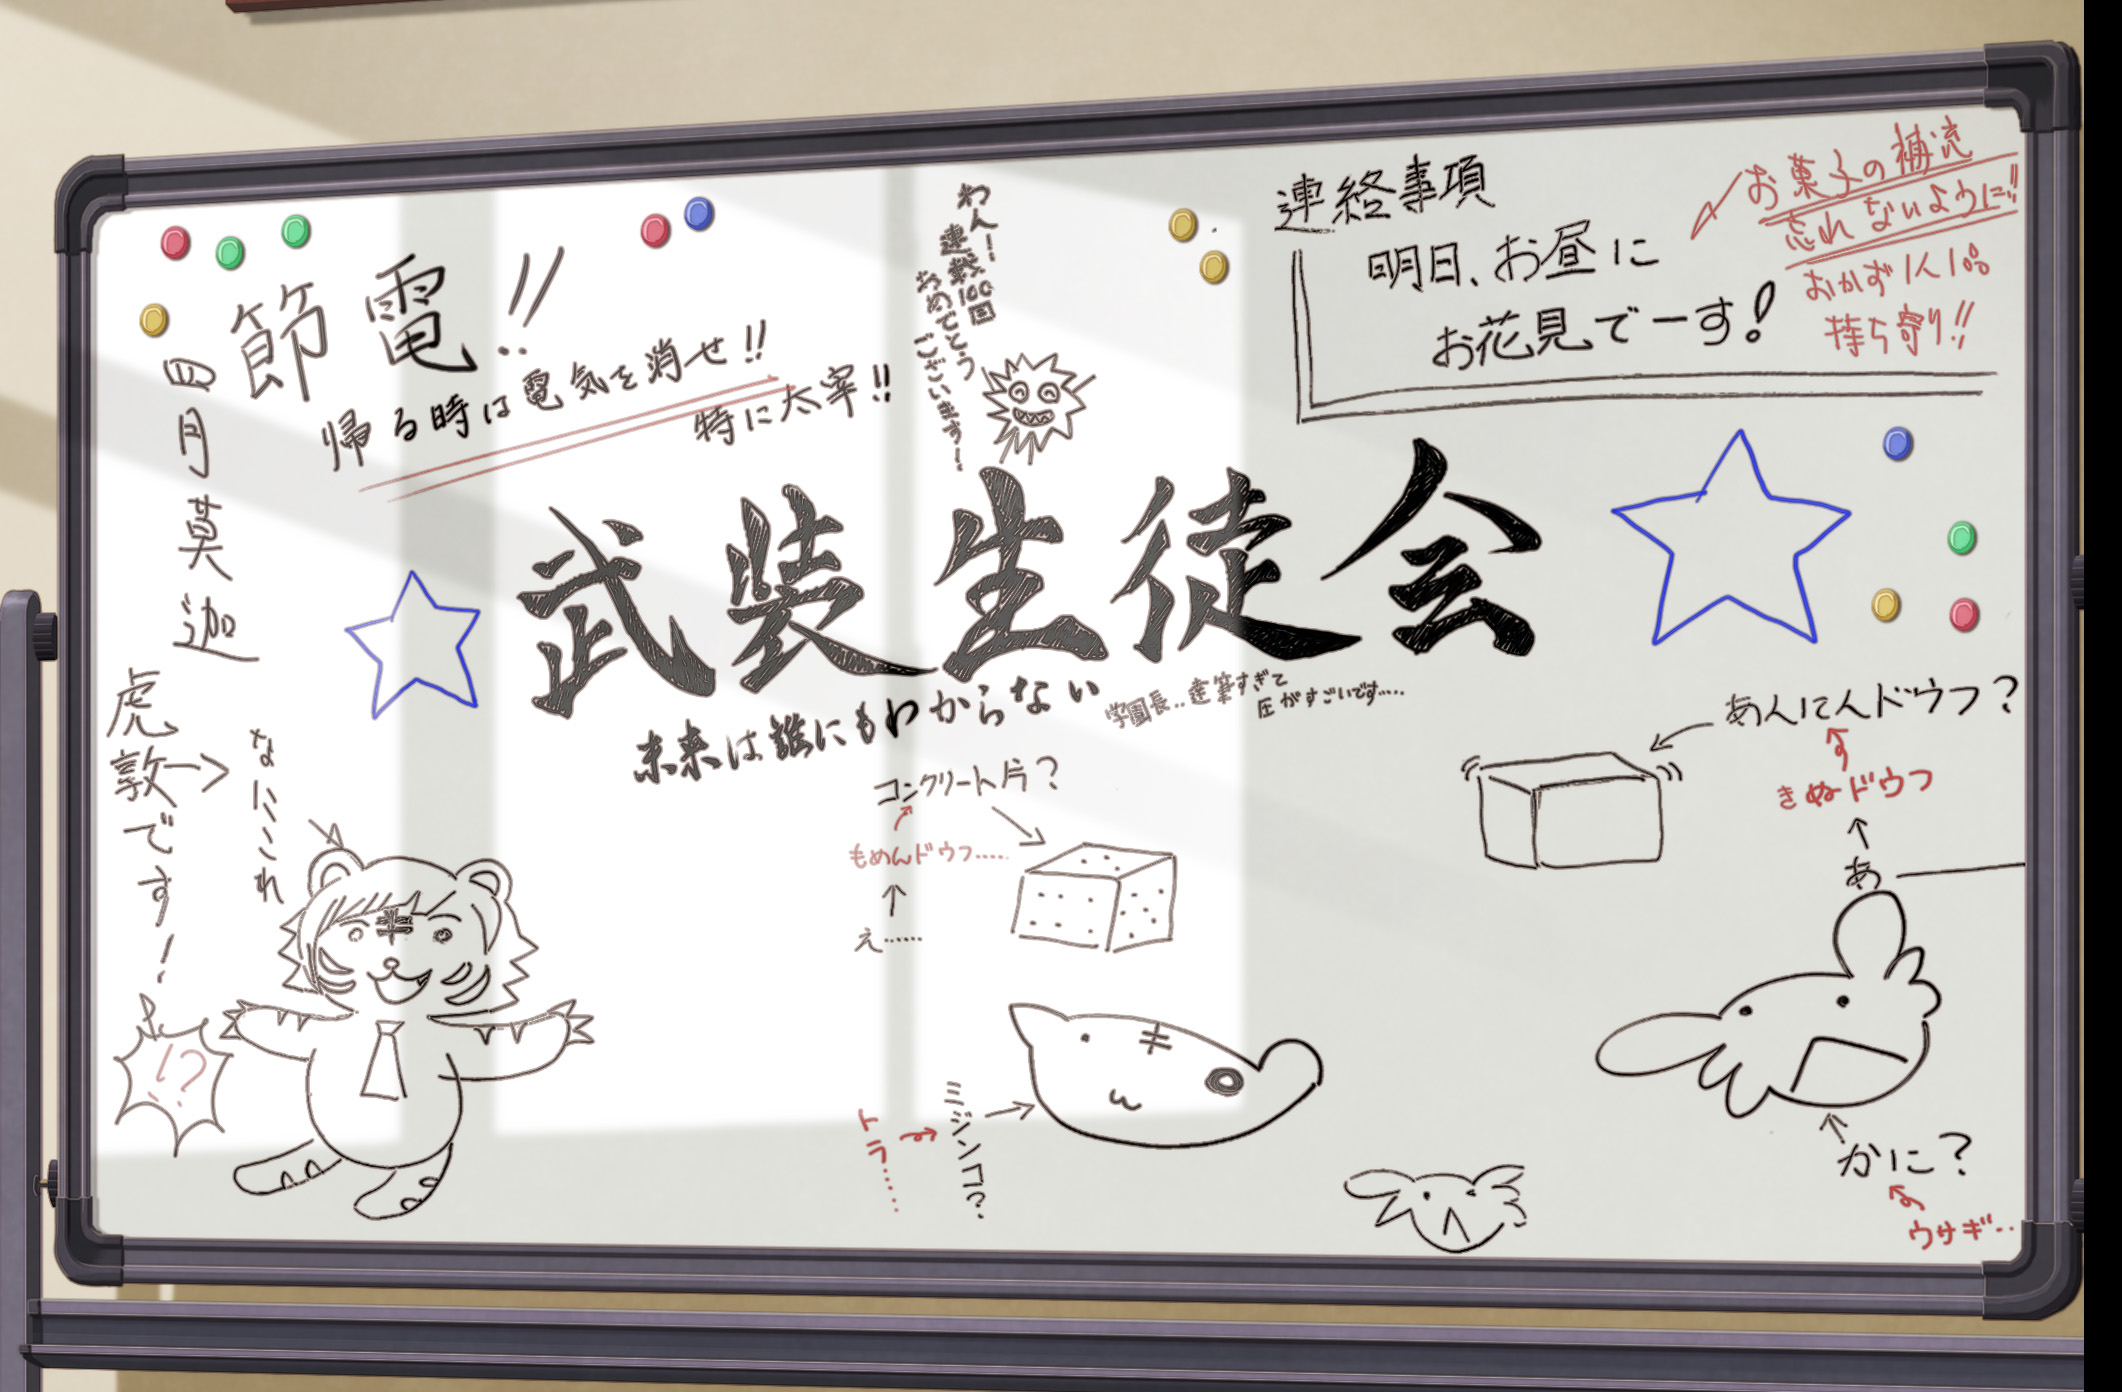 節電!!
帰る時は電気を消せ!!
特に太宰!!
四月莫迦
わん!連載100回
おめでとう
ございます!
連絡事項
明日、お昼に
お花見でーす!
お菓子の補充
忘れないように!!
おかず1人1品
持ち寄り!!
武装生徒会
未来は誰にもわからない
学園長‥達筆すぎて
圧がすごいです……
虎
敦です!
なにこれ
!?
コンクリート片?
もめんドウフ……
え……
あんにんドウフ?
きぬドウフ
あ
トラ……
ミジンコ?
かに?
ウサギ‥